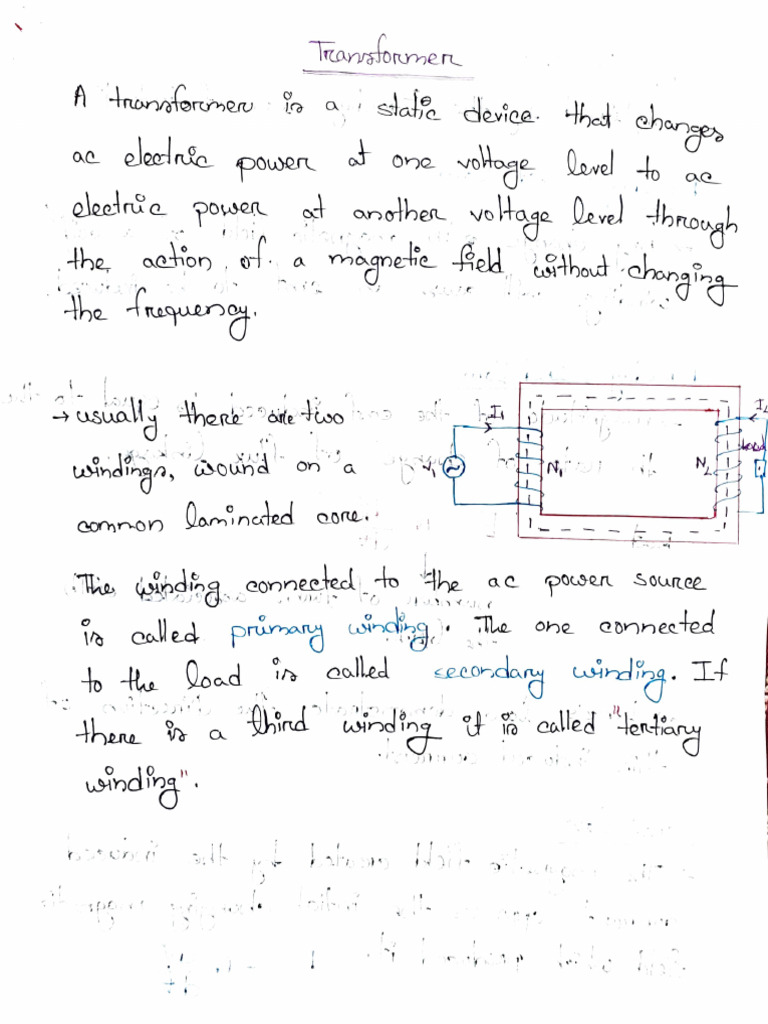 Transformer
A transformer is a static device. that changes
ac electric power at one voltage level to ac
electric power at another voltage level through
the action of a magnetic field without changing
the frequency.
→ usually there are two
windings, wound on a
common laminated core.
I1
V1
N1
N2
load
The winding connected to the ac power source
is called primary winding. The one connected
to the load is called secondary winding. If
there is a third winding it is called "tertiary
winding".